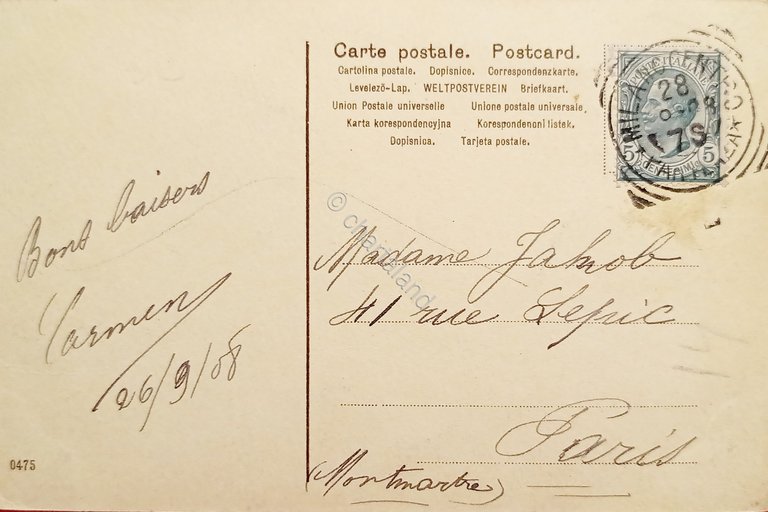 Carte postale. Postcard.
Cartolina postale. Dopisnice. Correspondenzkarte.
Levelező-Lap. WELTPOSTVEREIN Briefkaart.
Union Postale universelle Unione postale universale
Karta korespondencyjna Korespondenoni listek.
Dopisnica. Tarjeta postale.
POSTE ITALIANE
5 5
MILANO CENTRO
28
7S
© chartaland
Bons baisers
Carmen
26/9/08
Madame Jakob
41 rue Lepic
Paris
(Montmartre)
0475